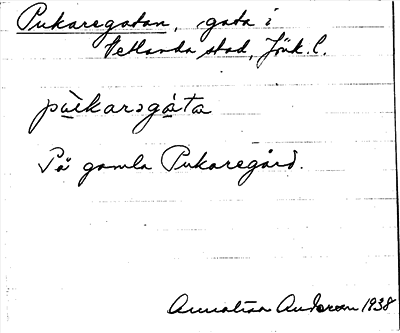 Pukaregatan, gata i
Vetlanda stad, Jönk. l.
pùkarəgáta
På gamla Pukaregård.
Anderson 1938